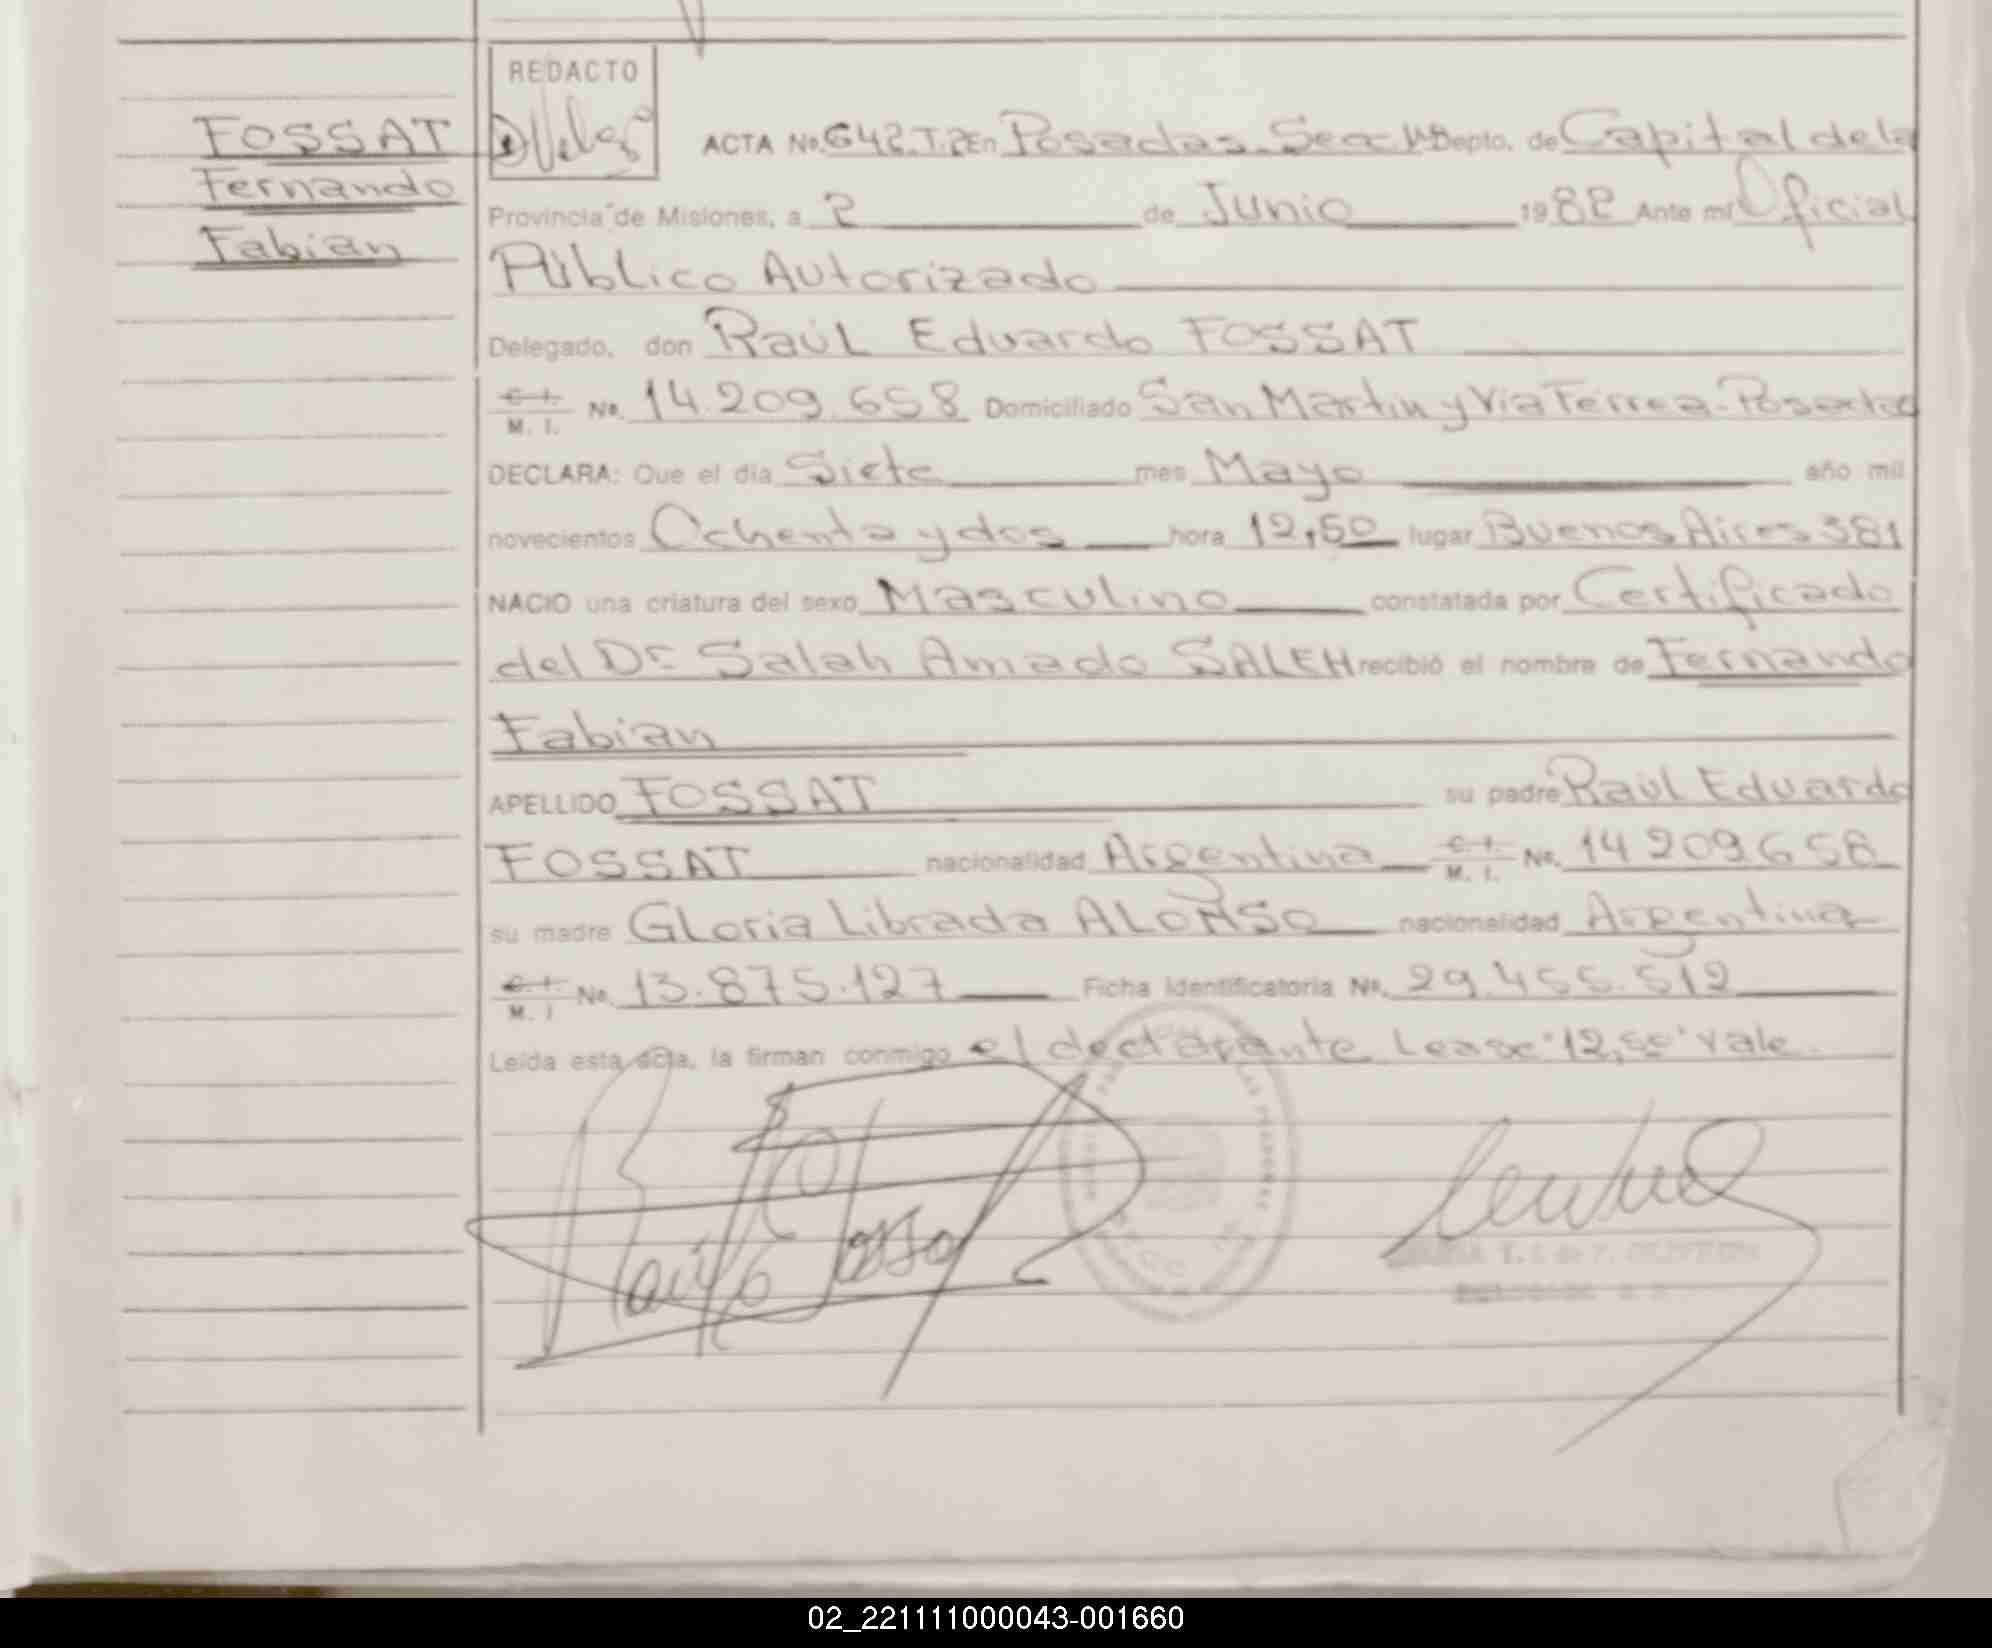 REDACTO
FOSSAT
Fernando
Fabian
ACTA No. 642.T.2 En Posadas. Secc Depto. de Capital de la
Provincia de Misiones, a 2 de Junio 1982 Ante mí Oficial
Público Autorizado
Delegado, don Raúl Eduardo FOSSAT
C. I. M. I. No. 14.209.658 Domiciliado San Martin y Via Ferrea - Posadas
DECLARA: Que el día Siete mes Mayo año mil
novecientos Ochenta y dos hora 12,50 lugar Buenos Aires 381
NACIO una criatura del sexo Masculino constatada por Certificado
del Dr. Salah Amado SALEH recibió el nombre de Fernando
Fabian
APELLIDO FOSSAT su padre Raúl Eduardo
FOSSAT nacionalidad Argentina C. I. M. I. No. 14209658
su madre Gloria Librada ALONSO nacionalidad Argentina
C. I. M. I No. 13.875.127 Ficha Identificatoria No. 29.455.512
Leída esta acta, la firman conmigo el declarante Lease "12,50" Vale.
02_221111000043-001660